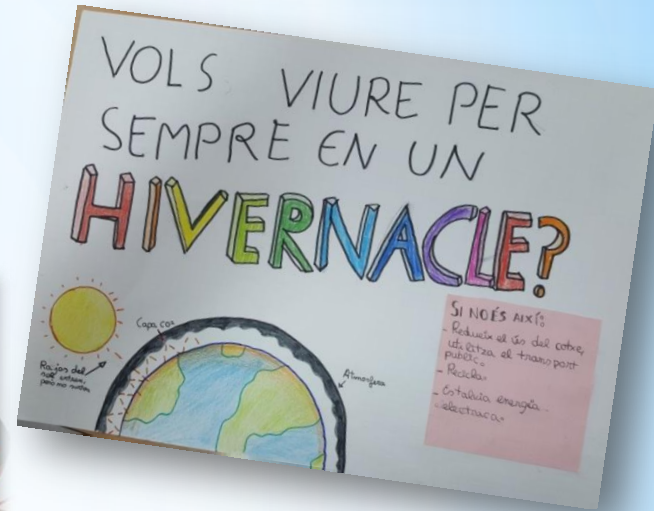 VOLS VIURE PER
SEMPRE EN UN
HIVERNACLE?
Capa CO2
Rajos del
sol entren,
pero no surten
Atmosfera
SI NO ÉS AIXÍ:
- Redueix el ús del cotxe,
utilitza el transport
públic.
- Recicla.
- Estalvia energia
electrica.